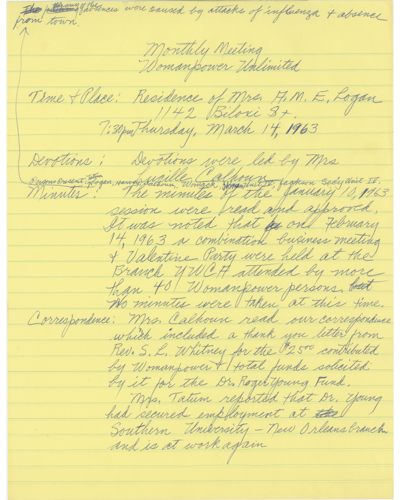 absences were caused by attacks of influenza & absence
from town
Monthly Meeting
Womanpower Unlimited
Time & Place: Residence of Mrs. A. M. E. Logan
1142 Biloxi St.
7:30pm Thursday, March 14, 1963
Devotions: Devotions were led by Mrs
Lucille Calhoun
Minutes: The minutes of the January 10, 1963
session were read and approved.
It was noted that on February
14, 1963 a combination business meeting
& Valentine Party were held at the
Branch YWCA attended by more
than 40 Womanpower persons but
no minutes were taken at this time.
Correspondence: Mrs. Calhoun read our correspondence
which included a thank you letter from
Rev. S. L. Whitney for the $25 contributed
by Womanpower & total funds solicited
by it for the Dr. Roger Young Fund.
Mrs. Tatum reported that Dr. Young
had secured employment at the
Southern University – New Orleans branch
and is at work again